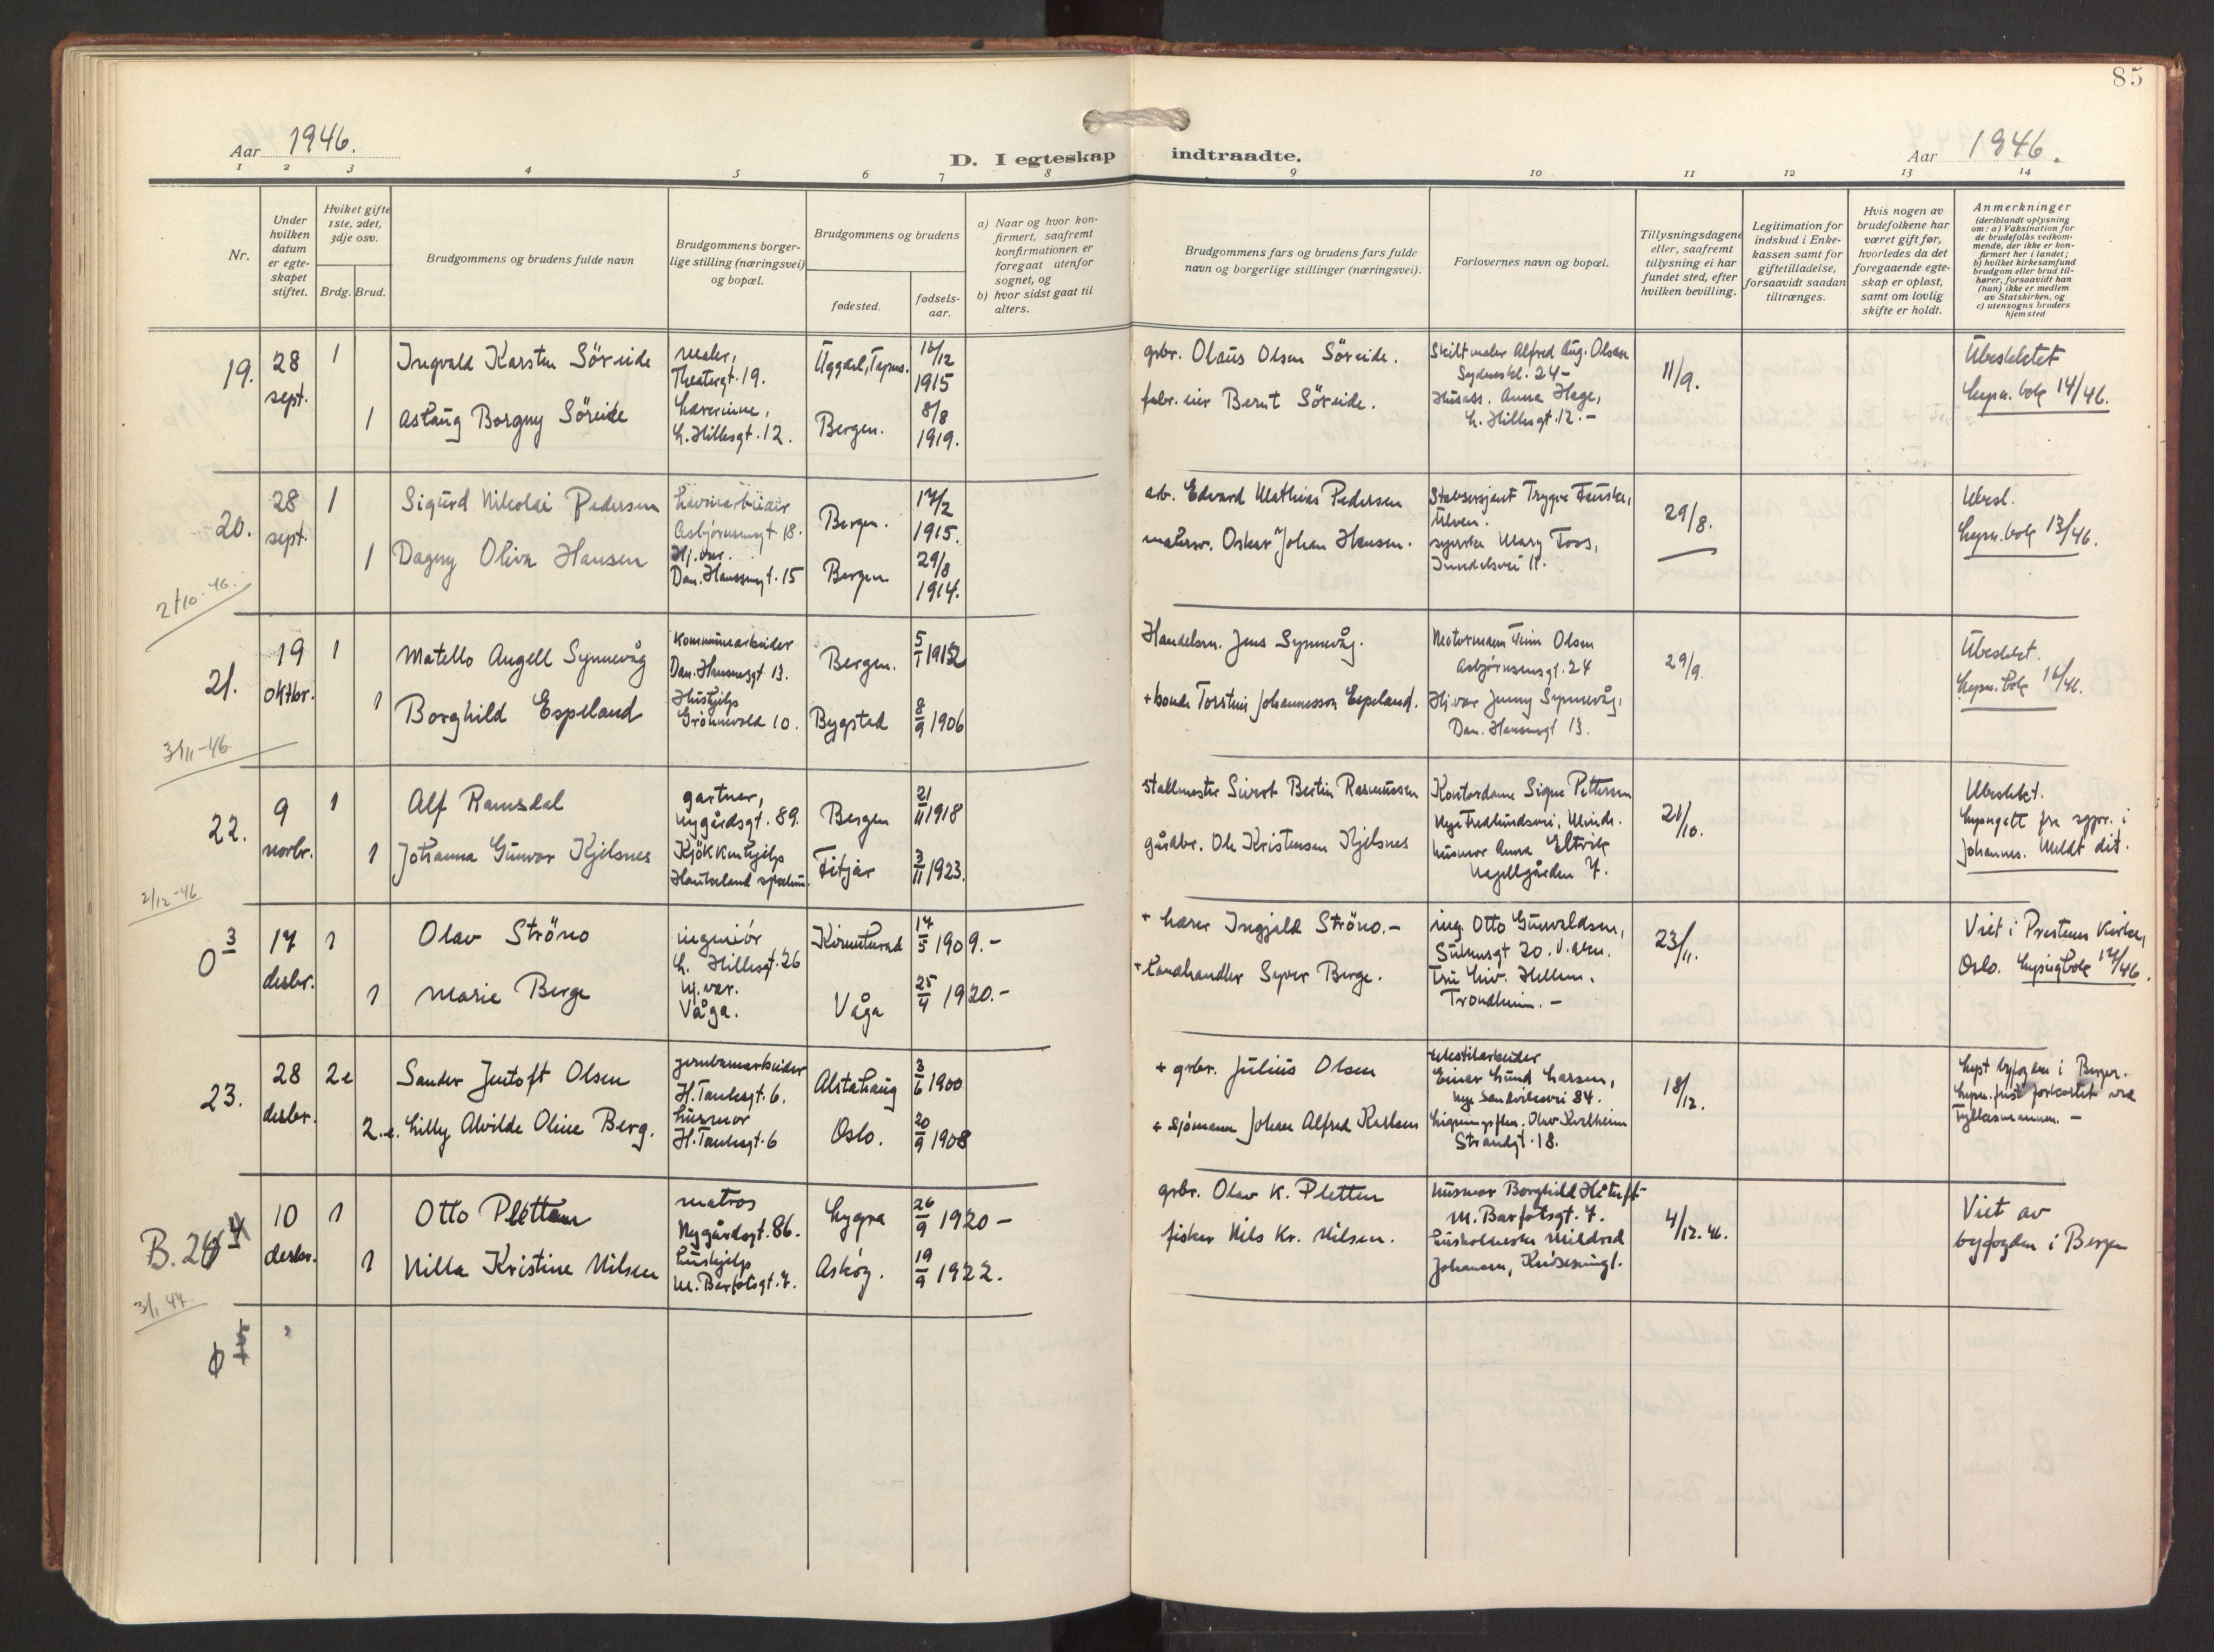 85
Aar 1946.
D. I egteskap indtraadte.
Aar 1946.
1 2 3 4 5 6 7 8 9 10 11 12 13 14
Nr.
Under
hvilken
datum
er egte-
skapet
stiftet.
Hviket gifte
1ste, 2det,
3dje osv.
Brdg. Brud.
Brudgommens og brudens fulde navn
Brudgommens borger-
lige stilling (næringsvei)
og bopæl.
Brudgommens og brudens
fødested.
fødsels-
aar.
a) Naar og hvor kon-
firmert, saafremt
konfirmationen er
foregaat utenfor
sognet, og
b) hvor sidst gaat til
alters.
Brudgommens fars og brudens fars fulde
navn og borgerlige stillinger (næringsvei).
Forlovernes navn og bopæl.
Tillysningsdagene
eller, saafremt
tillysning ei har
fundet sted, efter
hvilken bevilling.
Legitimation for
indskud i Enke-
kassen samt for
giftetilladelse,
forsaavidt saadan
tiltrænges.
Hvis nogen av
brudefolkene har
været gift før,
hvorledes da det
foregaaende egte-
skap er opløst,
samt om lovlig
skifte er holdt.
Anmerkninger
(deriblandt oplysning
om: a) Vaksination for
de brudefolks vedkom-
mende, der ikke er kon-
firmert her i landet;
b) hvilket kirkesamfund
brudgom eller brud til-
hører, forsaavidt han
(hun) ikke er medlem
av Statskirken, og
c) utensogns bruders
hjemsted
19.
28
sept.
1
Ingvald Karsten Söreide
maler,
Theatergt. 19.
16/12
1915
gbr. Olaus Olsen Söreide.
Skiltmaler Alfred Aug. Olsen
24-
11/9.
Ubeslektet
lysn. bok 14/46.
1
Aslaug Borgny Söreide
lærerinne,
L. Hillesgt. 12.
Bergen.
8/8
1919.
fabr. eier Bernt Söreide.
Husass. Anna Hage,
L. Hillesgt. 12.-
20.
28
sept.
1
Sigurd Nikolai Pedersen
havnearbeider
Asbjörnsensgt 18.
Bergen.
17/2
1915.
arb. Edvard Mathias Pedersen
Stabsersjant Trygve
Ulven.
29/8.
Ubesl.
lysn. bok 13/46.
1
Dagny Oliva Hansen
Hj. vær.
Dan. Hansensgt. 15
Bergen
29/8
1914.
malersv. Oskar Johan Hansen.
syerske Mary Foss,
2/10-46.
21.
19
oktbr.
1
Matello Angell Synnevåg
Kommunearbeider
Dan. Hansensgt 13.
Bergen.
5/1 1912
Handelsm. Jens Synnevåg.
Motormann Finn Olsen
Asbjörnsensgt. 24
29/9.
Ubeslekt.
lysn. bok 16/46.
1
Borghild Espeland
Hushjelp
Grönnevold 10.
Bygstad
8/9 1906
+ bonde Torstein Johannesson Espeland.
Hj. vær Jenny Synnevåg,
Dan. Hansensgt 13.
3/11-46.
22.
9
novbr.
1
Alf Ramsdal
gartner,
Nygårdsgt. 89.
Bergen
21/11 1918
Stallmester Sivert Bertin Rasmussen
Kontordame Signe Pettersen
Nye Fredlundsvei, Minde.
21/10.
Ubeslekt.
lysngatt fra sgpr. i
Johannes. Meldt dit.
1
Johanna Gunvor Kjelsnes
Kjökkenhjelp
Haukeland sykehus.
Fitjar
3/11 1923.
gårdbr. Ole Kristensen Kjelsnes
husmor Anna Eltvik
Nagellgården 7.
2/12-46
O 3
17
desbr.
1
Olav Ströno
ingeniör
L. Hillesgt. 26
17/5 1909.-
+ lærer Ingjald Ströno.-
ing. Otto Gunvaldsen,
23/11.
Viet i Prestenes Kirke,
Oslo. Lysingbok 17/46.
1
Marie Berge
Hj. vær.
Våga.
Våga
25/4 1920.-
+ landhandler Syver Berge.
Fru Liv. Hellem.
Trondheim.-
23.
28
desbr.
2e
Sander Jentoft Olsen
jernbanearbeider
H. Tanksgt. 6.
Alstahaug
3/6 1900
+ gbr. Julius Olsen
tekstilarbeider
Einar Lund Larsen,
Nye Sandviksvei 84.
18/12.
lyst byfogden i Bergen.
lysn. frist forkortet ved
fylkesmannen.-
2.e.
Lilly Alvilde Oline Berg.
husmor
H. Tanksgt. 6
Oslo.
20/9 1908
+ sjömann Johan Alfred Karlsen
Olav Kvalheim
Strandgt. 18.
B. 24 4
10
desbr.
1
Otto Pletten
matros
Nygårdsgt. 86.
Lygra
26/9 1920-
gbr. Olav K. Pletten
husmor Borghild
M. Barfotsgt. 7.
4/12.46.
Viet av
byfogden i Bergen
1
Nilla Kristine Nilsen
hushjelp
M. Barfotsgt. 7.
Asköy.
19/9 1922.
fisker Nils Kr. Nilsen.
husholderske Mildred
Johansen,
3/1 47.